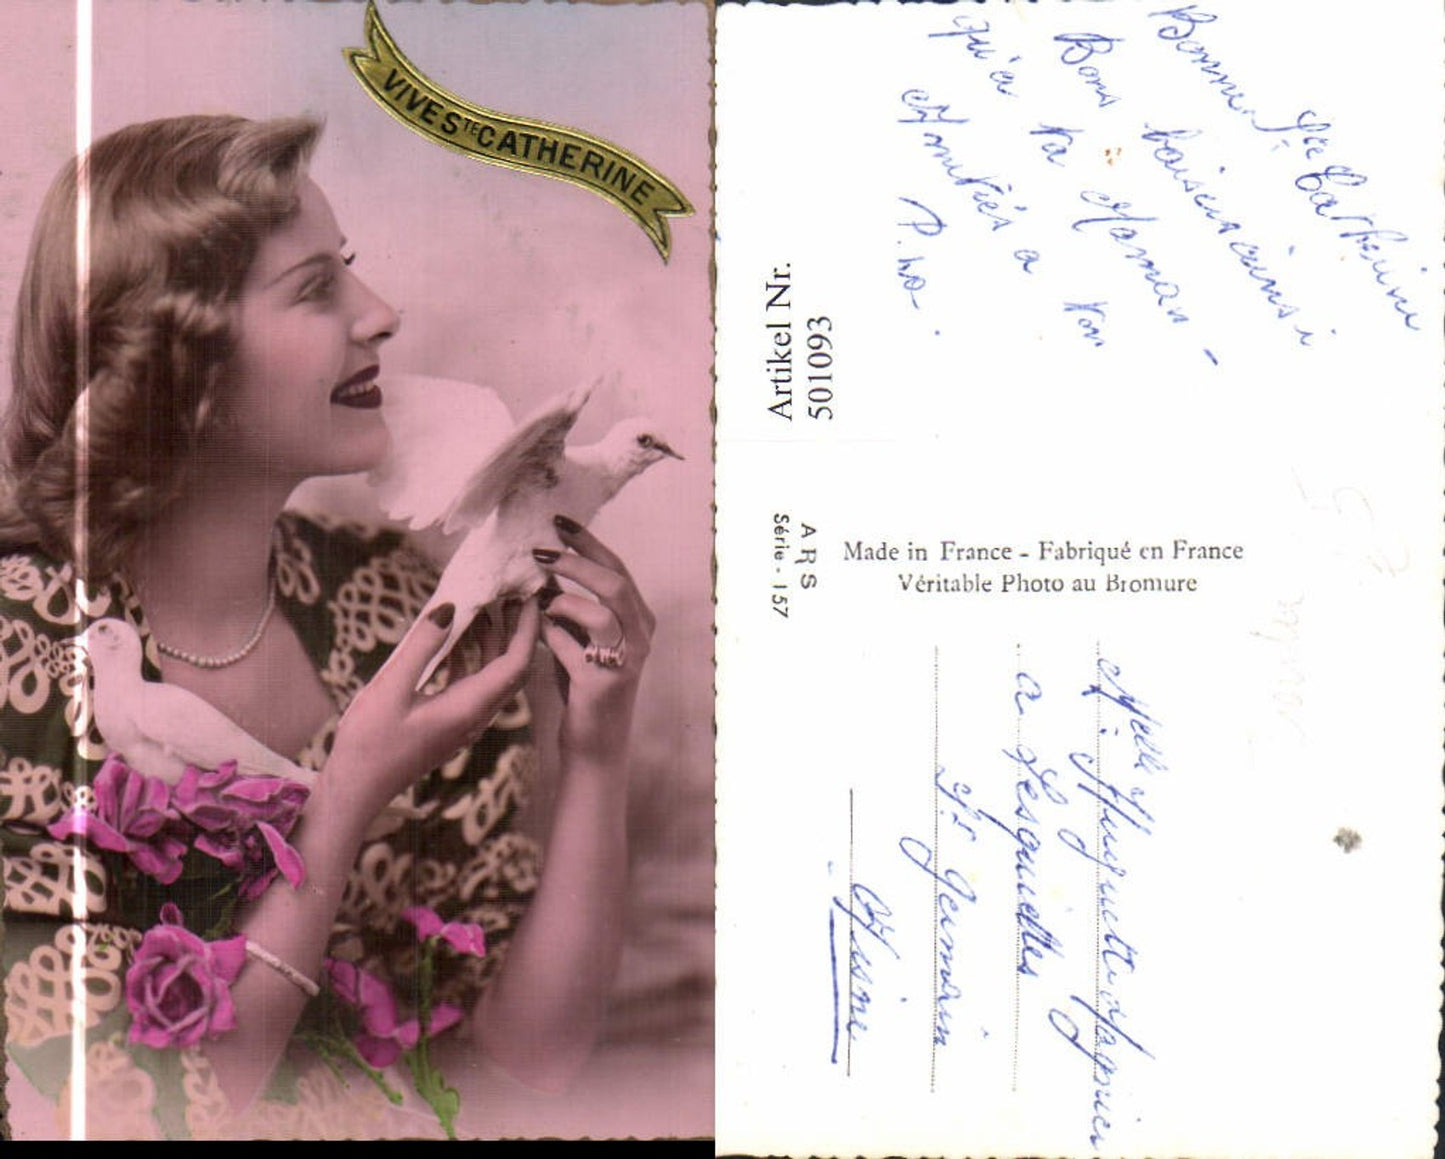 VIVE STE CATHERINE
Bonne Ste Catherine
Bons baisers ainsi
qu'a ta Maman -
Amitiés a ton
Artikel Nr.
501093
ARS
Série - 157
Made in France - Fabriqué en France
Véritable Photo au Bromure
Melle Huguette
a Lesquielles
St Germain
Aisne